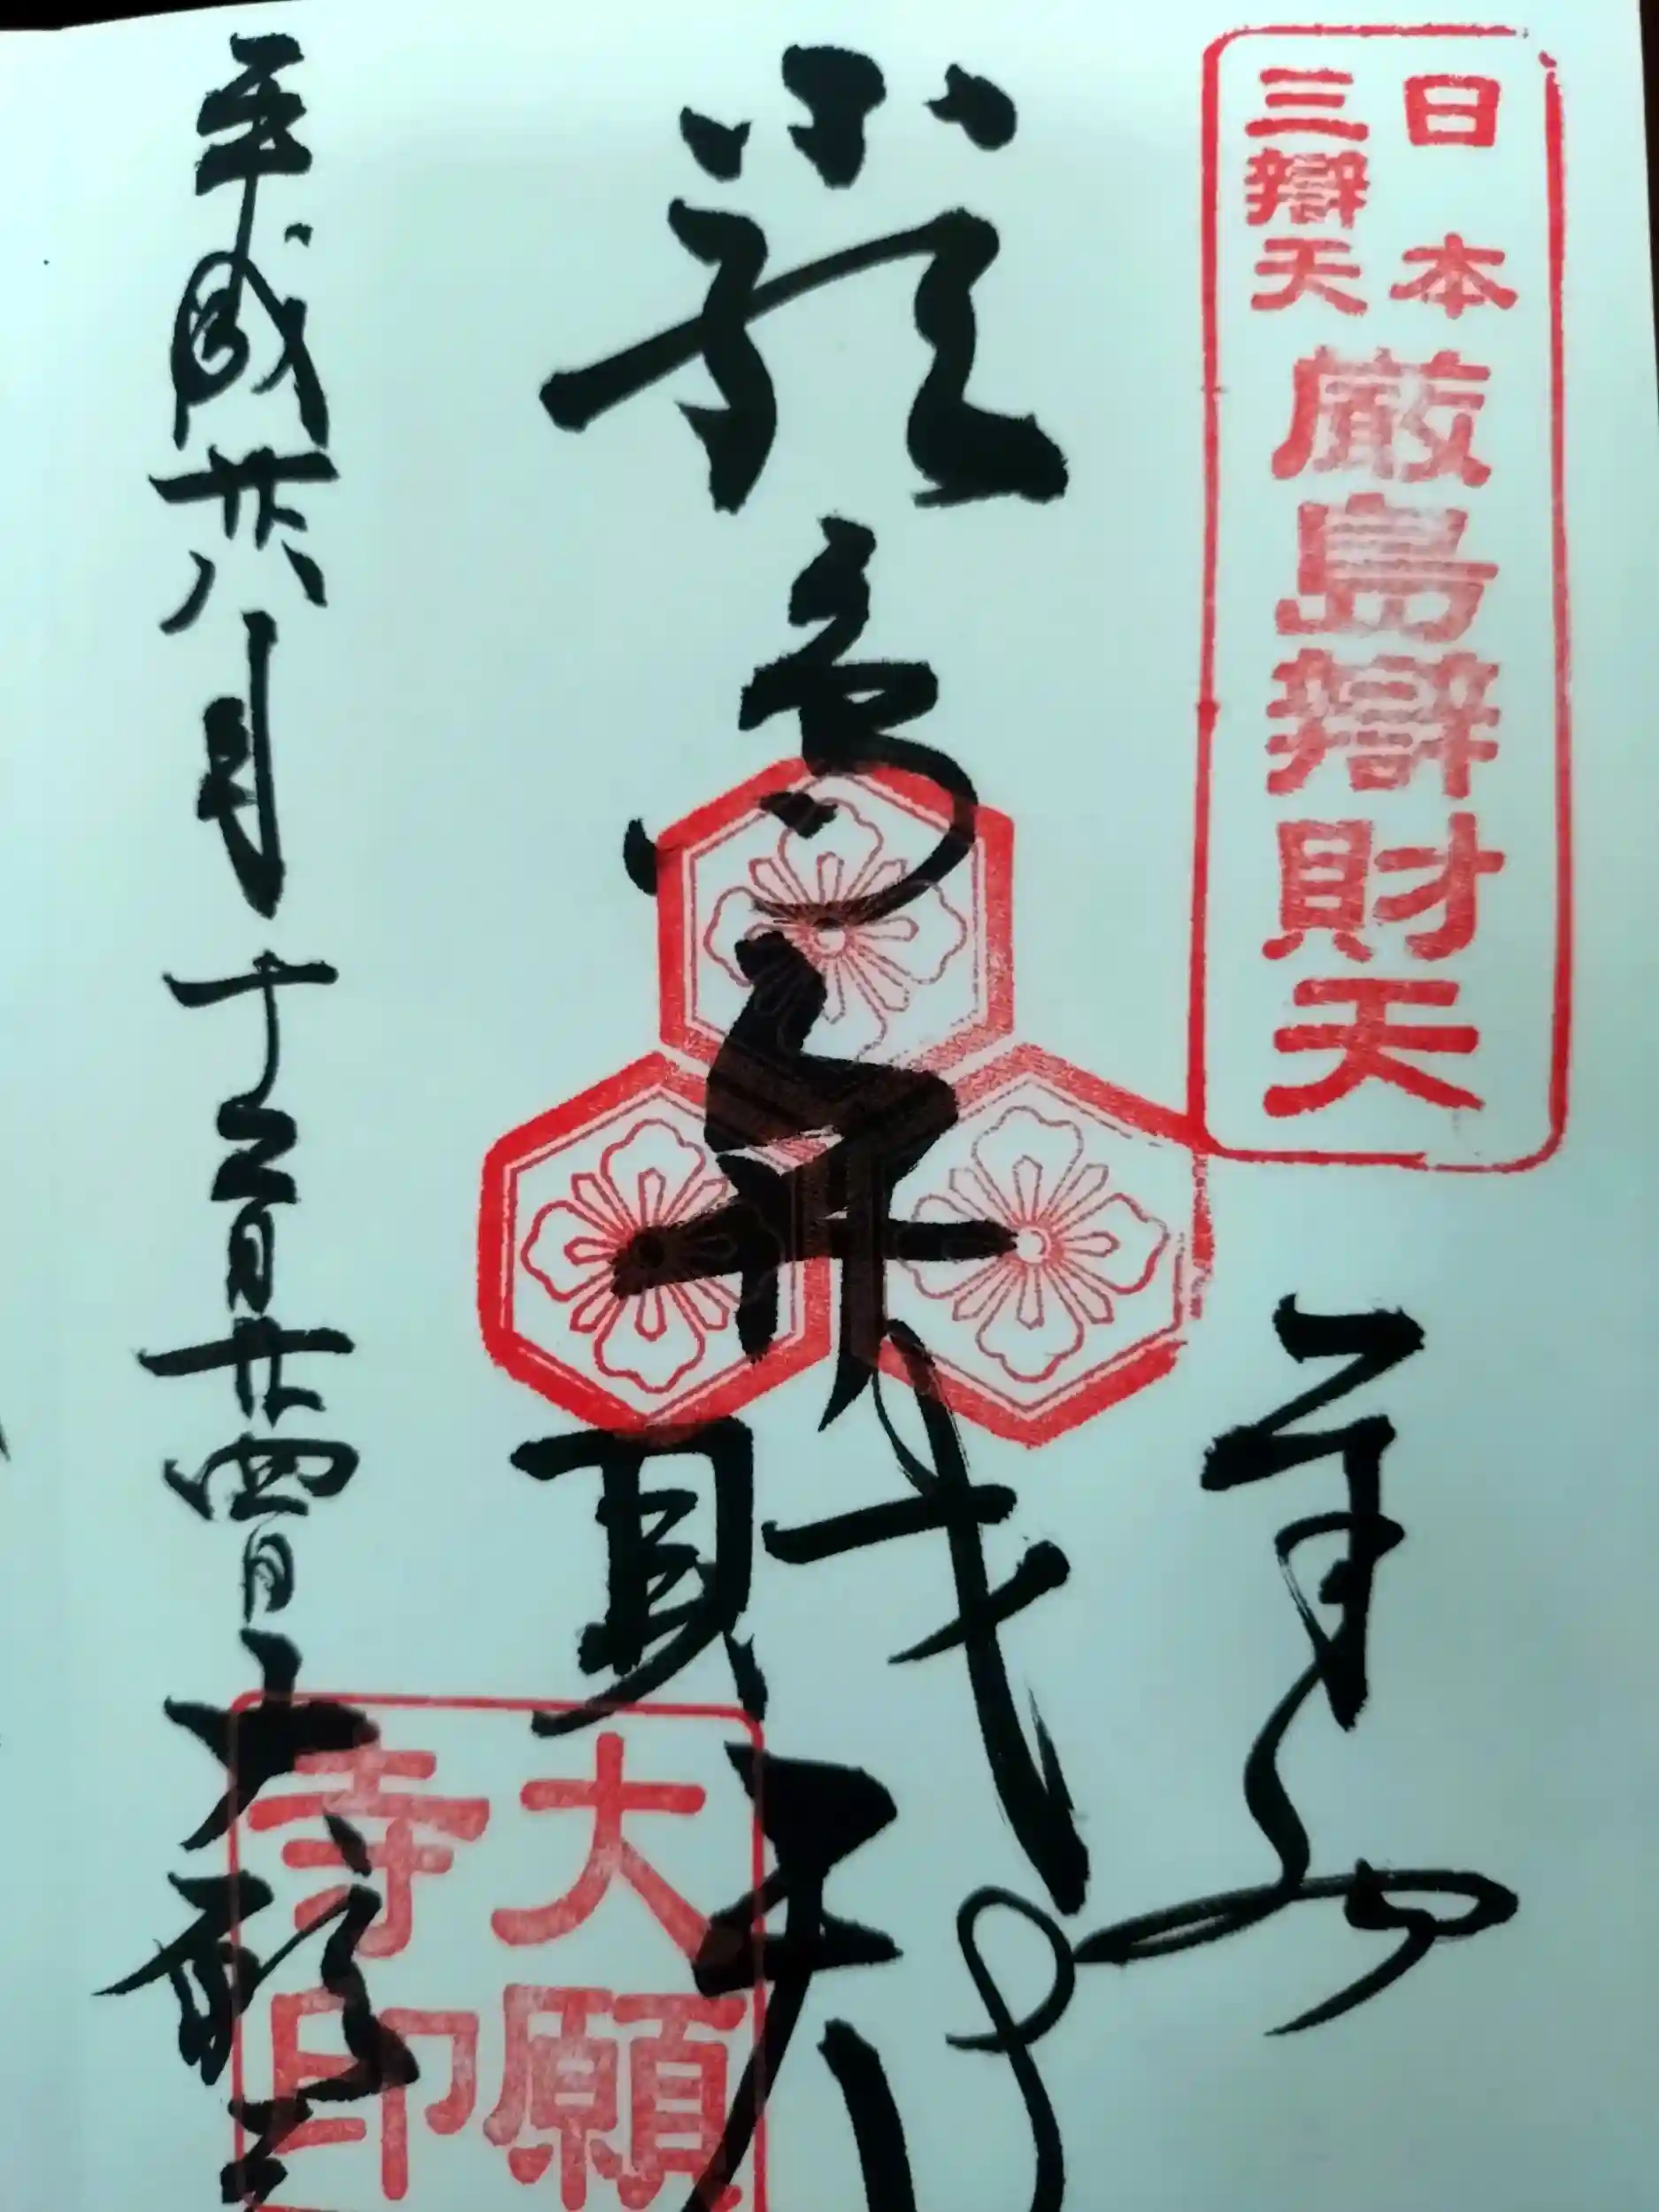 日本
三辯天
厳島辯財天
厳島弁財天
平成廿八年十二月廿四日 大願寺
大願
寺印